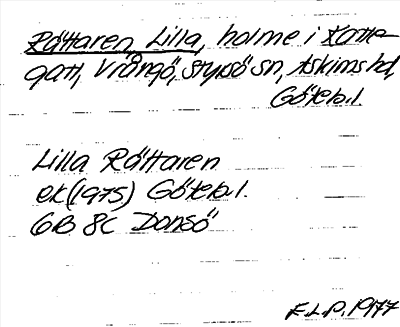 Råttaren, Lilla, holme i Katte-
gatt, Vrångö, Styrsö sn, Askims hd,
Göteb.l.
Lilla Råttaren
ek (1975) Göteb.l.
6B 8C Donsö
F.L.P. 1977